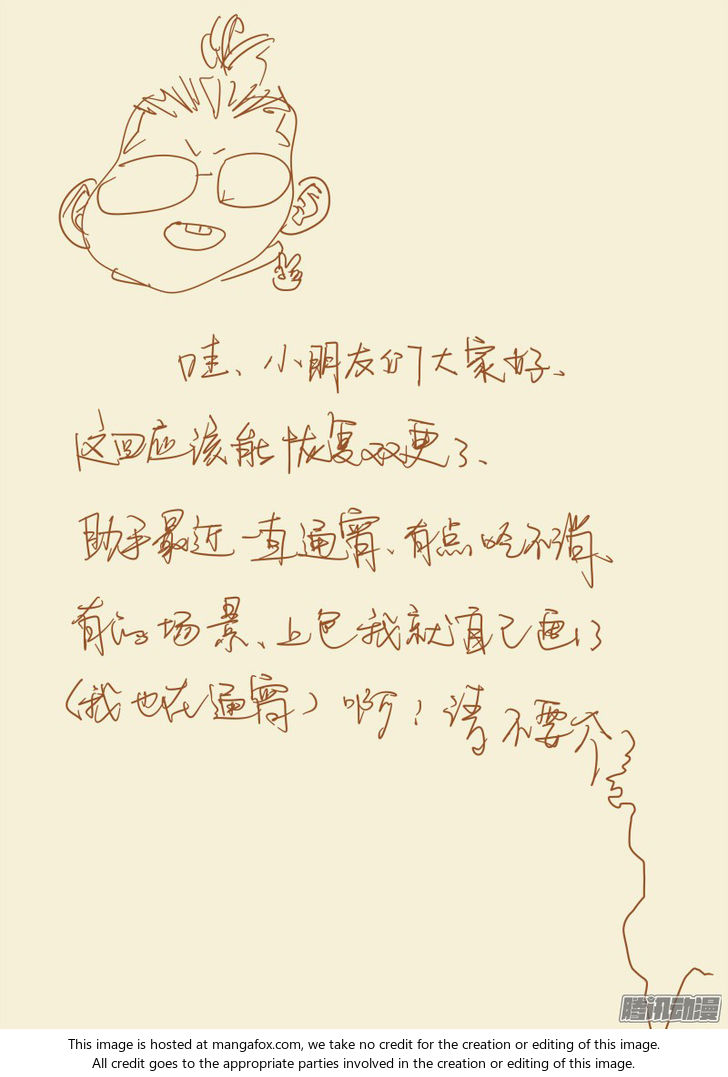 哇、小朋友们大家好、
这回应该能恢复双更了、
助手最近一直通宵、有点吃不消、
有的场景、上色我就自己画了
（我也在通宵）啊！请不要介意
腾讯动漫
This image is hosted at mangafox.com, we take no credit for the creation or editing of this image.
All credit goes to the appropriate parties involved in the creation or editing of this image.